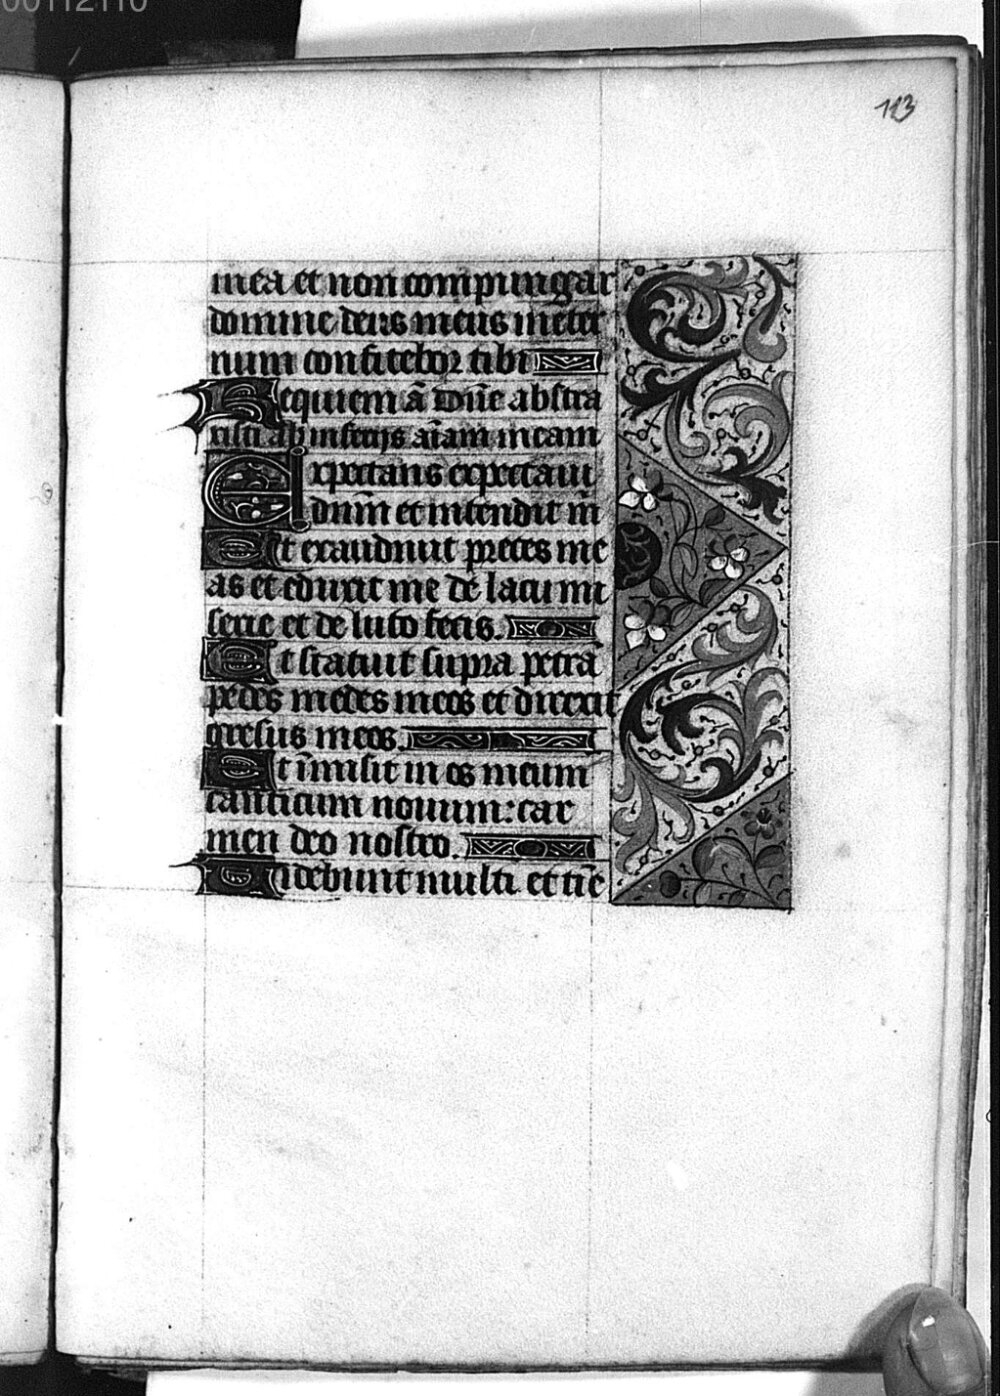 00112110
113
mea et non compungar
domine deus meus ineter
num confitebor tibi
Requiem ã Dñe abstra
xisti ab inferijs aĩam meam
Expectans expectaui
dnm̃ et intendit m̃
Et exaudiuit preces me
as et eduxit me de lacu mi
serie et de luto fecis.
Et statuit supra petrã
pedes medes meos et direxit
gresus meos.
Et ĩmisit in os meum
canticum nouum: car
men deo nostro.
Uidebunt multi et tie